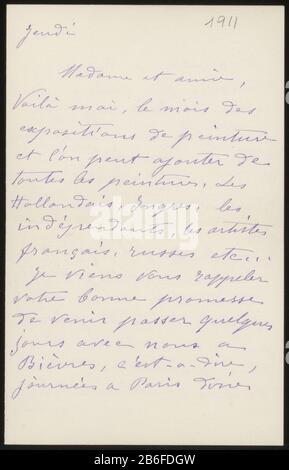 1911
Jeudi
Madame et amie,
Voilà mai, le mois des
expositions de peinture
et l'on peut ajouter de
toutes les peintures. Les
Hollandais, Ingres, les
indépendants, les artistes
français, russes etc...
Je viens vous rappeler
votre bonne promesse
de venir passer quelques
jours avec nous a
Bièvres, c'est-a-dire,
journées a Paris
alamy
Image ID: 2B6FDGW
www.alamy.com